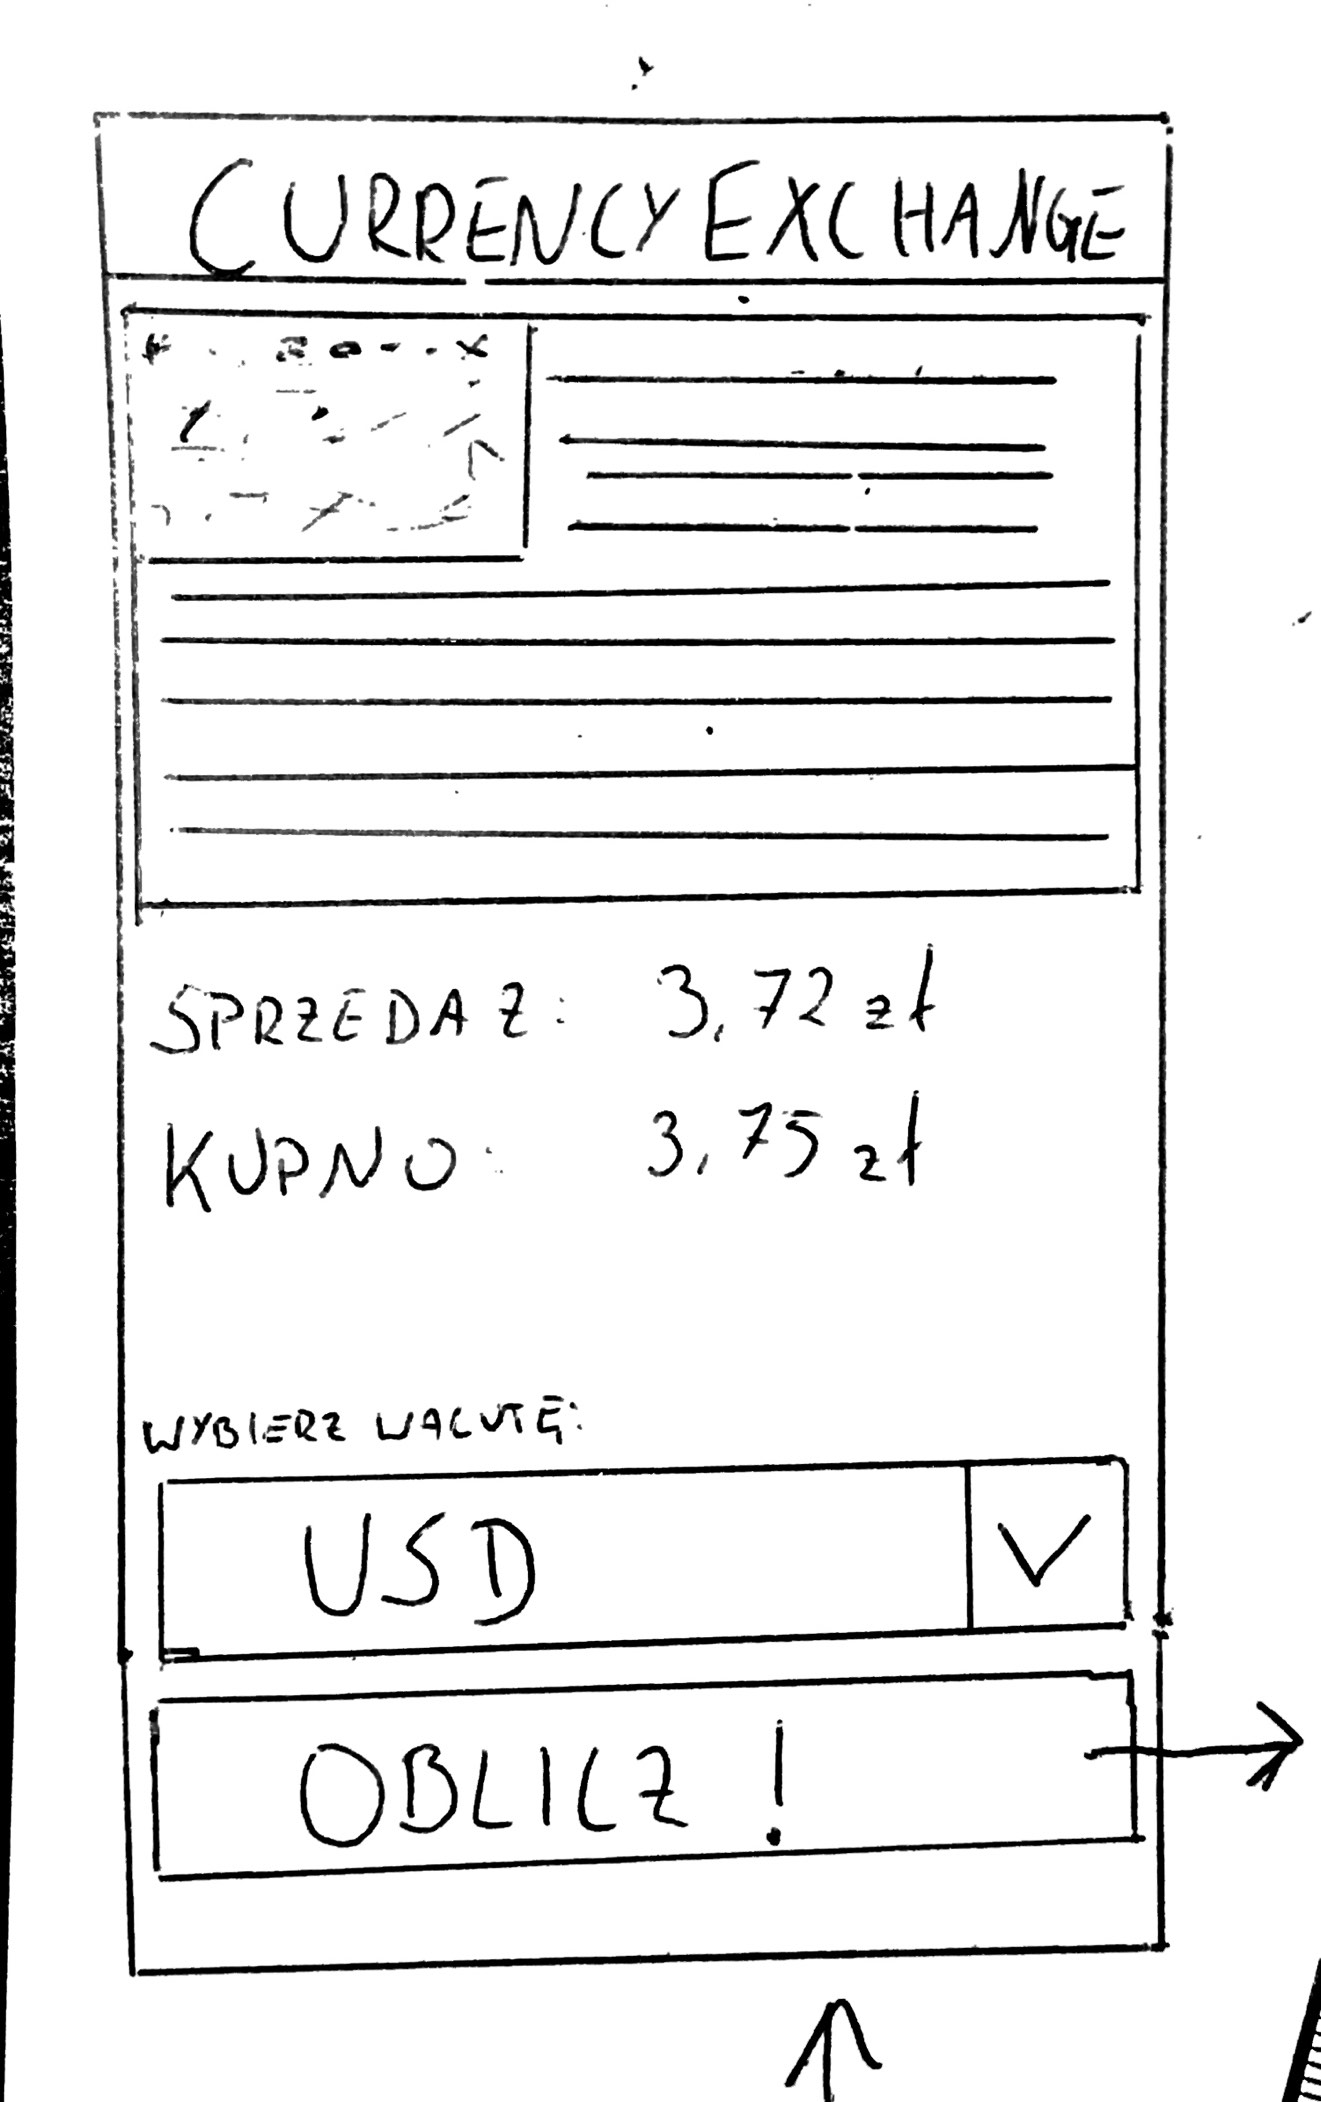 CURRENCY EXCHANGE
SPRZEDAZ: 3,72 zł
KUPNO: 3,75 zł
WYBIERZ WALUTĘ:
USD
OBLICZ!